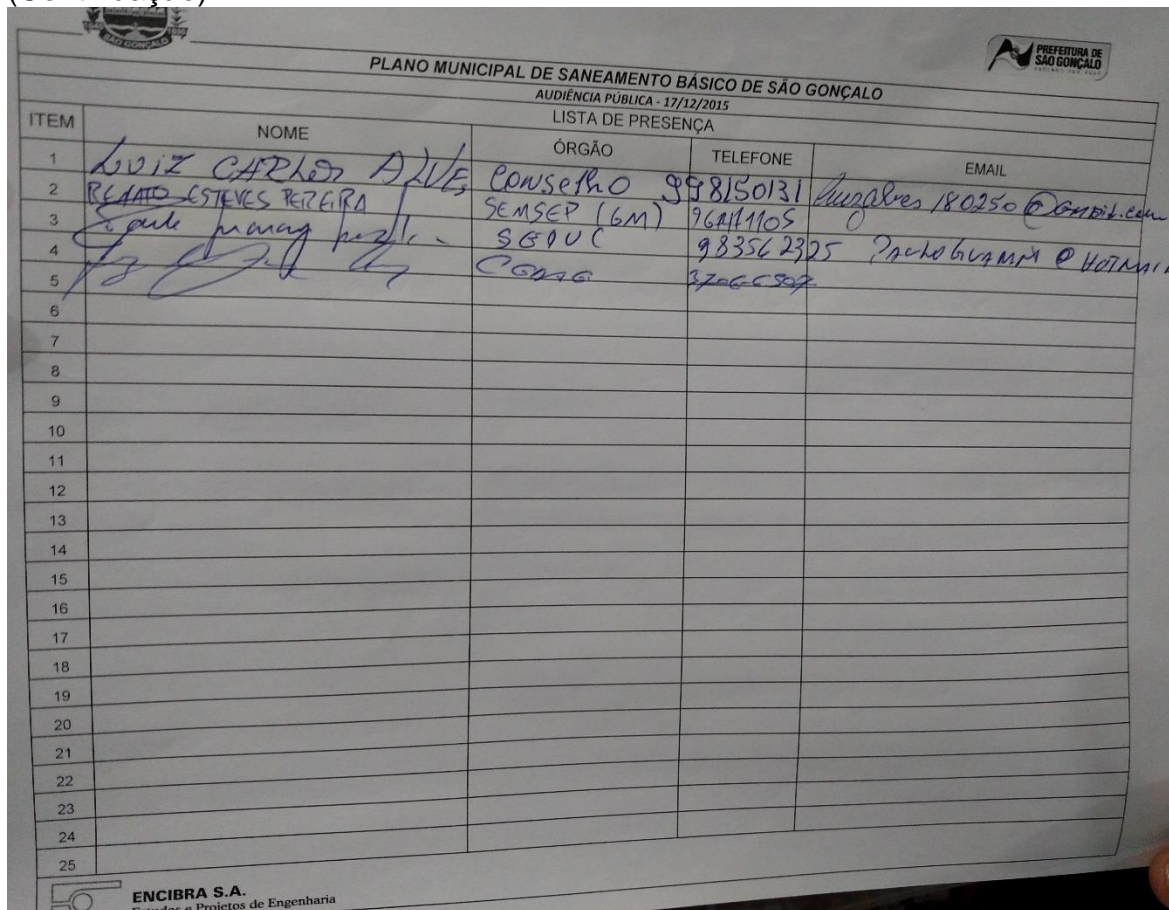 (Continuação)
SÃO GONÇALO
PREFEITURA DE
SÃO GONÇALO
PLANO MUNICIPAL DE SANEAMENTO BÁSICO DE SÃO GONÇALO
AUDIÊNCIA PÚBLICA - 17/12/2015
LISTA DE PRESENÇA
ITEM NOME ÓRGÃO TELEFONE EMAIL
1 LUIZ CARLOS ALVES Conselho 998150131
2 RENATO ESTEVES PEREIRA SEMSEP (GM)
3 SEDUC 983562325
4
5
6
7
8
9
10
11
12
13
14
15
16
17
18
19
20
21
22
23
24
25
ENCIBRA S.A.
Estudos e Projetos de Engenharia